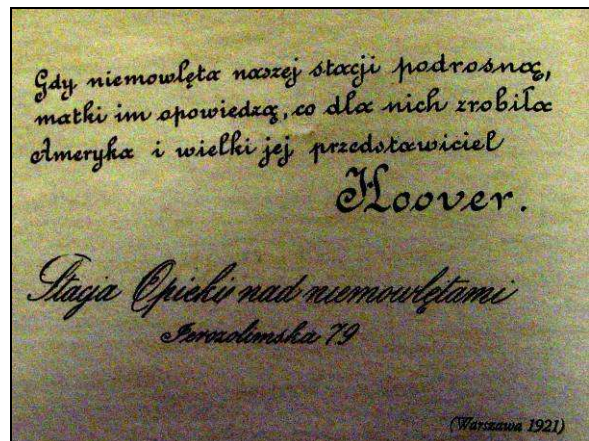 Gdy niemowlęta naszej stacji podrosną,
matki im opowiedzą, co dla nich zrobiła
Ameryka i wielki jej przedstawiciel
Hoover.
Stacja Opieki nad niemowlętami
Jerozolimska 79
(Warszawa 1921)